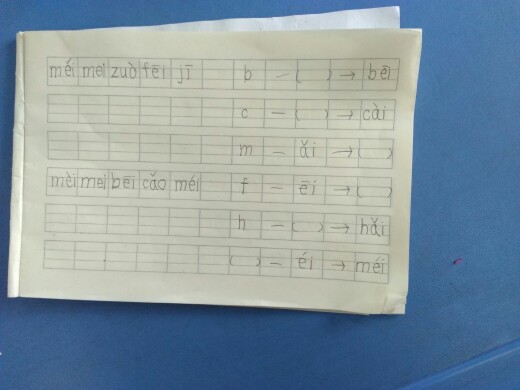 méi mei zuò fēi jī b — ( ) → bēi
c — ( ) → cài
m — ǎi → ( )
mèi mei bēi cǎo méi f — ēi → ( )
h — ( ) → hǎi
( ) — éi → méi